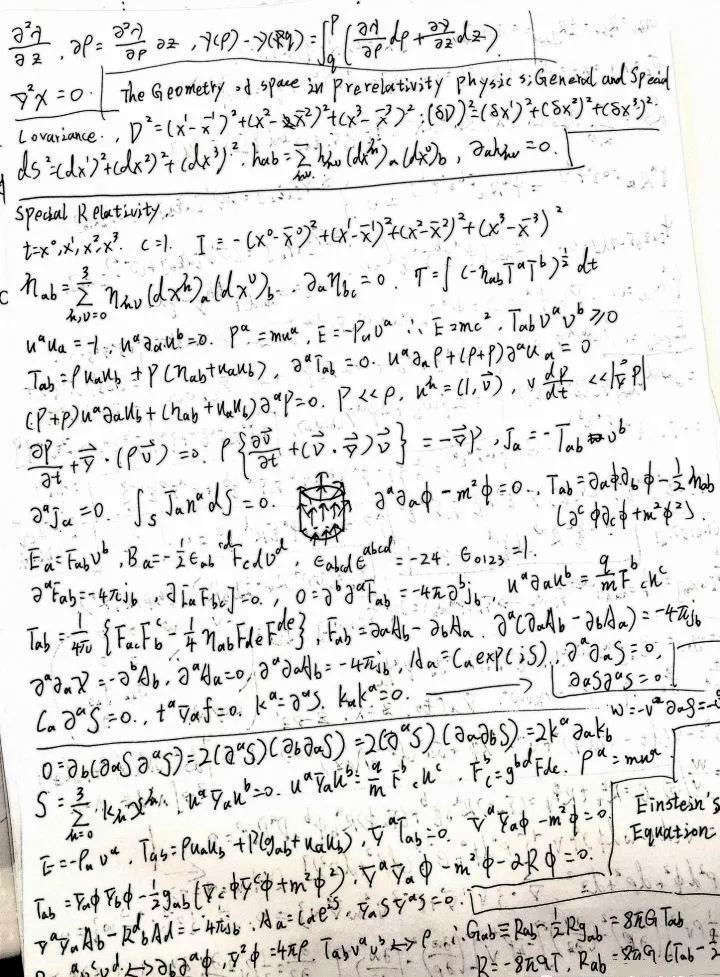 ∂²λ/∂z, ∂ρ = ∂²λ/∂ρ ∂z, γ(p) - γ(q) = ∫_q^p (∂λ/∂ρ dρ + ∂γ/∂z dz)
∇²X = 0. The Geometry of space in Prerelativity physics; General and Special
Covariance. D² = (x¹ - x̄¹)² + (x² - x̄²)² + (x³ - x̄³)². (δD)² = (δx¹)² + (δx²)² + (δx³)².
ds² = (dx¹)² + (dx²)² + (dx³)². hab = Σ_{μν} hμν (dx^μ)a (dx^ν)b, ∂a hμν = 0.
Special Relativity.
t = x⁰, x¹, x², x³. c = 1. I = -(x⁰ - x̄⁰)² + (x¹ - x̄¹)² + (x² - x̄²)² + (x³ - x̄³)²
ηab = Σ_{μ,ν=0}^3 ημν (dx^μ)a (dx^ν)b. ∂a ηbc = 0. τ = ∫ (-ηab T^a T^b)^{1/2} dt
u^a ua = -1, u^a ∂a u^b = 0. P^a = mu^a, E = -Pa υ^a ∴ E = mc², Tab υ^a υ^b ≥ 0
Tab = ρ ua ub + P(ηab + ua ub), ∂^a Tab = 0. u^a ∂a ρ + (ρ + P) ∂^a ua = 0
(P + ρ) u^a ∂a ub + (ηab + ua ub) ∂^a P = 0. P << ρ, u^μ = (1, v⃗), v dP/dt << |∇⃗ P|
∂ρ/∂t + ∇⃗ · (ρ v⃗) = 0. ρ {∂v⃗/∂t + (v⃗ · ∇⃗) v⃗} = -∇⃗ P, Ja = -Tab υ^b
∂^a Ja = 0. ∫_S Ja n^a dS = 0. ∂^a ∂a φ - m² φ = 0., Tab = ∂a φ ∂b φ - 1/2 ηab
(∂^c φ ∂c φ + m² φ²).
Ea = Fab υ^b, Ba = -1/2 εab^cd Fcd υ^b, εabcd ε^abcd = -24. ε0123 = 1.
∂^a Fab = -4π jb, ∂[a Fbc] = 0., 0 = ∂^b ∂^a Fab = -4π ∂^b jb, u^a ∂a u^b = q/m F^b c u^c
Tab = 1/4π {Fac Fb^c - 1/4 ηab Fde F^de}, Fab = ∂a Ab - ∂b Aa. ∂^a (∂a Ab - ∂b Aa) = -4π jb
∂^a ∂a χ = -∂^b Ab, ∂^a Aa = 0, ∂^a ∂a Ab = -4π jb, Aa = Ca exp(iS), ∂^a ∂a S = 0,
∂a S ∂^a S = 0.
Ca ∂^a S = 0., t^a ∇a f = 0. k^a = ∂^a S. ka k^a = 0.
W = -υ^a ∂a S =
0 = ∂b (∂a S ∂^a S) = 2(∂^a S)(∂b ∂a S) = 2(∂^a S)(∂a ∂b S) = 2k^a ∂a kb
S = Σ_{μ=0}^3 kμ x^μ. u^a ∇a u^b = 0. u^a ∇a u^b = q/m F^b c u^c. F^b c = g^bd Fdc. P^a = mu^a
E = -Pa υ^a, Tab = ρ ua ub + P(gab + ua ub). ∇^a Tab = 0. ∇^a ∇a φ - m² φ = 0
Einstein's
Equation
Tab = ∇a φ ∇b φ - 1/2 gab (∇c φ ∇^c φ + m² φ²). ∇^a ∇a φ - m² φ - αR φ = 0.
∇^a ∇a Ab - R^d b Ad = -4π jb. Aa = Ca e^iS ∇a S ∇^a S = 0.
∂b ∂^a φ, ∇² φ = 4πρ. Tab υ^a υ^b ↔ ρ Gab ≡ Rab - 1/2 R gab = 8πG Tab
-R = -8πGT Rab = 8πG (Tab -